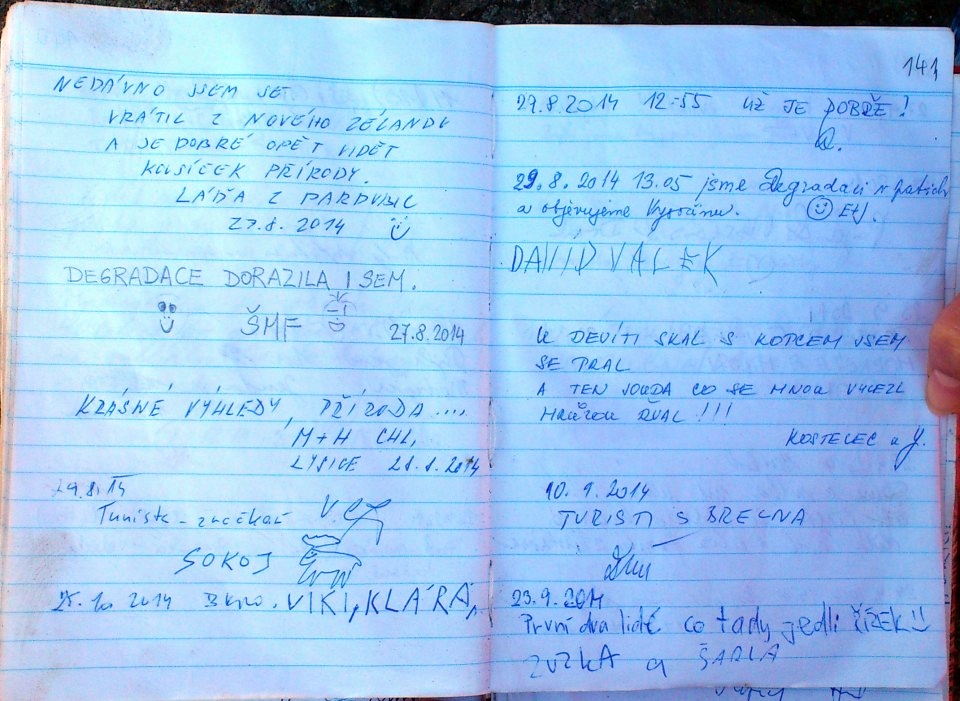 NEDÁVNO JSEM SE
VRÁTIL Z NOVÉHO ZÉLANDU
A JE DOBRÉ OPĚT VIDĚT
KOUSÍČEK PŘÍRODY.
LÁĎA Z PARDUBIC
27.8.2014
DEGRADACE DORAZILA I SEM.
ŠMF 27.8.2014
KRÁSNÉ VÝHLEDY, PŘÍRODA....
M+H CHL,
LYSICE 28.8.2014
29.8.14
Turista -
SOKOJ
2014 Brno. VIKI, KLÁRA,
141
27.8.2014 12-55 UŽ JE DOBŘE!
29.8.2014 13.05 jsme Degradaci v patách
a objevujeme Vysočinu. EH.
DAVID VÁLEK
U DEVÍTI SKAL S KOPCEM JSEM
SE PRAL
A TEN JOUDA CO SE MNOU VYLEZL
HRŮZOU ŘVAL!!!
KOSTELEC n J.
10.9.2014
TURISTI S BREZNA
23.9.2014
První dva lidé co tady jedli ŘÍZEK
ZUZKA a ŠARLA